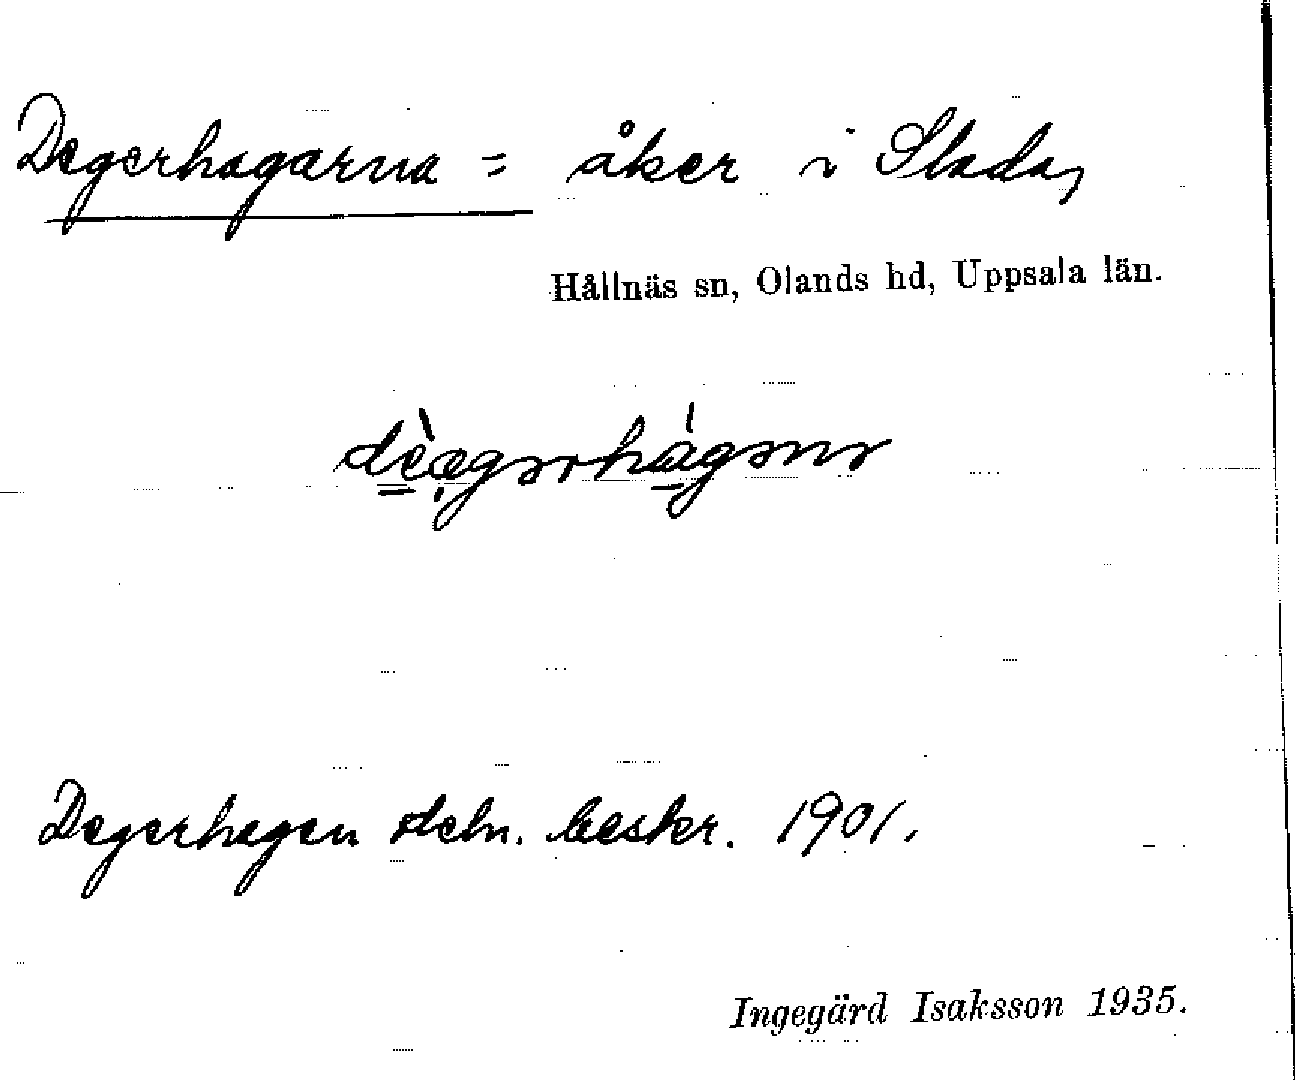 Degerhagarna = åker i Slada,
Hållnäs sn, Olands hd, Uppsala län.
Degerhagen beskr. 1901.
Ingegärd Isaksson 1935.